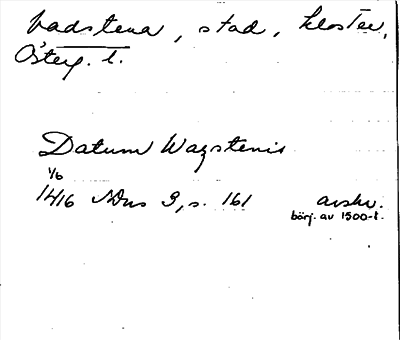 Vadstena, stad, kloster,
Österg. l.
Datum Wazstenis
1/6
1416 NDns 3, s. 161 avskr.
börj. av 1500-t.